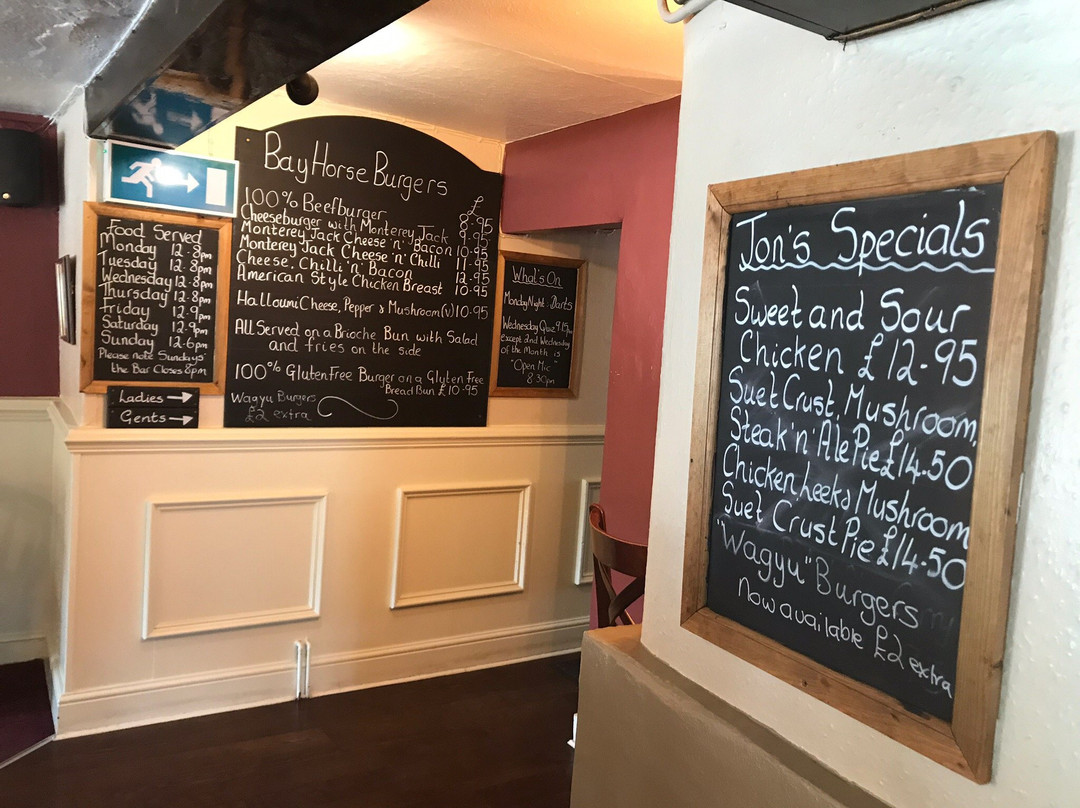 Food Served
Monday 12-8pm
Tuesday 12-8pm
Wednesday 12-8pm
Thursday 12-8pm
Friday 12-9pm
Saturday 12-9pm
Sunday 12-6pm
Please note Sundays
the Bar Closes 8pm
Ladies →
Gents →
Bay Horse Burgers
£
100% Beefburger 8-95
Cheeseburger with Monterey Jack 9-95
Monterey Jack Cheese 'n' Bacon 10-95
Monterey Jack Cheese 'n' Chilli 11-95
Cheese, Chilli 'n' Bacon 12-95
American Style Chicken Breast 10-95
Halloumi Cheese, Pepper & Mushroom (v) 10-95
All Served on a Brioche Bun with Salad
and fries on the side
100% Gluten Free Burger on a Gluten Free
Bread Bun £10-95
Wagyu Burgers
£2 extra
What's On
Monday Night - Darts
Wednesday Quiz 9.15pm
except 2nd Wednesday
of the Month is
"Open Mic"
8.30pm
Jon's Specials
Sweet and Sour
Chicken £12-95
Suet Crust, Mushroom,
Steak 'n' Ale Pie £14.50
Chicken, Leek & Mushroom
Suet Crust Pie £14-50
"Wagyu" Burgers
now available £2 extra